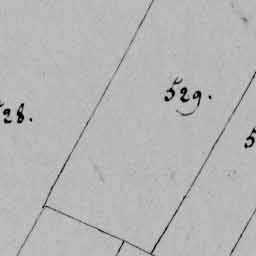 529.
28.
5